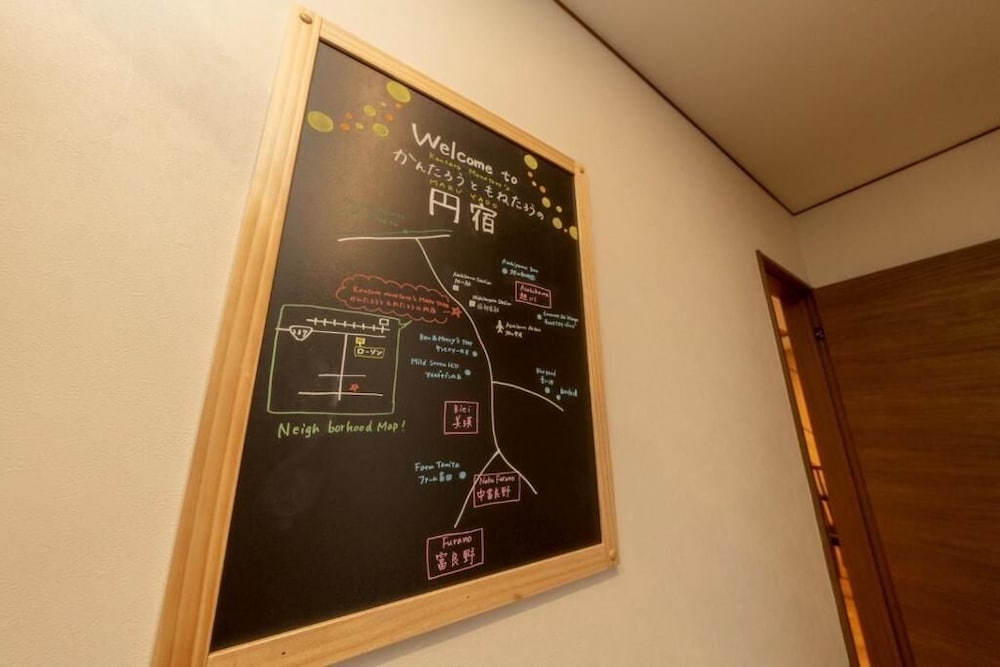 Welcome to
Kantaro Monetaro's
かんたろうともねたろうの
MARU YADO
円宿
Asahiyama Zoo
旭山動物園
Asahikawa
旭川
Asahikawa Station
旭川駅
Station
Asahikawa Airport
Kantaro monetaro's Maru Yado
かんたろうともねたろうの円宿
237
ローソン
Neighborhood Map!
Ken & Mary's Tree
ケンとメリーの木
Mild Seven Hills
マイルドセブンの丘
Blue pond
青い池
Biei
美瑛
Farm Tomita
ファーム富田
Naka Furano
中富良野
Furano
富良野